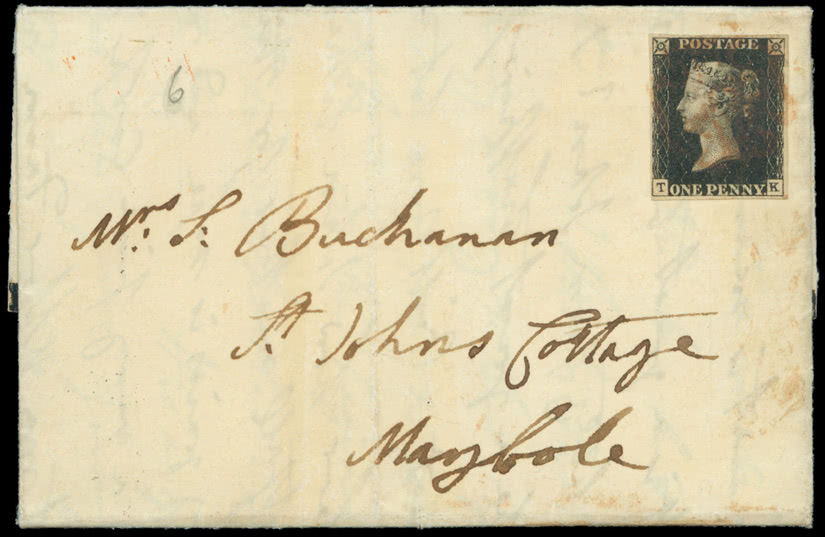 6
POSTAGE
T ONE PENNY K
Mrs. S: Buchanan
St. Johns Cottage
Maybole